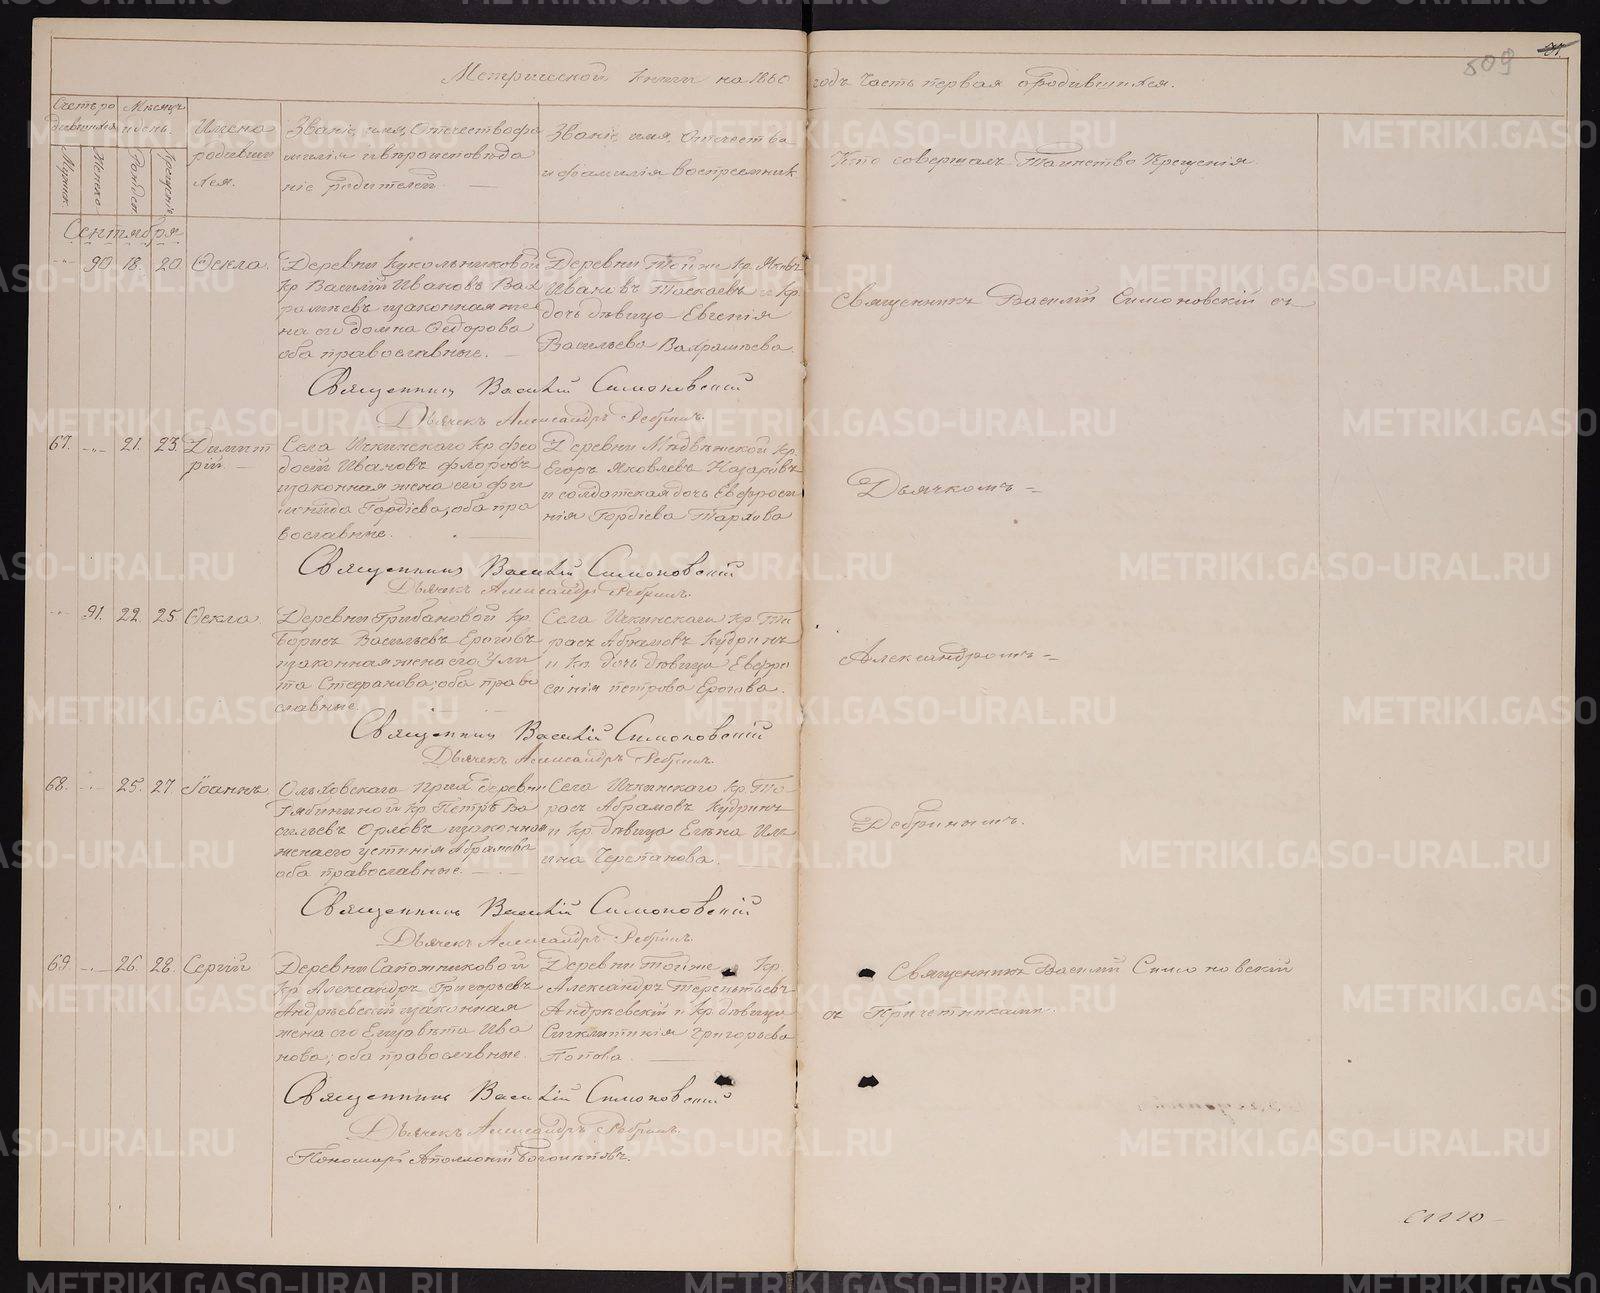 809
Метрической книги на 1860 годъ часть первая о родившихся.
Счетъ ро
дившихся
Мужск.
Женско
Мѣсяцъ
и день.
Рожден.
Крещенія
Имена
родивши
хся.
Званіе, имя, Отчество фа
милія и вѣроисповѣда
ніе родителей.
Званіе, имя, Отчества
и фамилія воспріемник
Кто совершалъ Таинство Крещенія
Сентября
90. 18. 20. Ѳекла.
Деревни Кукольниковой
Кр Василій Ивановъ Вах
рамѣевъ изаконная же
на его домна Ѳедорова
оба православные.
Деревни Тойже Кр. Яковъ
Ивановъ Таскаевъ и Кр
дочь дѣвица Евгенія
Васильева Вахрамѣева.
Священникъ Василій Симоновскій съ
Священникъ Василій Симоновскій
Дьячекъ Александръ Ребринъ.
67. 21. 23. Димит
рій
Села Ичкинскаго Кр. фео
досій Ивановъ флоровъ
изаконная жена его фи
Гордіева; оба пра
вославные.
Деревни Мѣдвѣжской Кр.
Егоръ Яковлевъ Назаровъ
и солдатская дочь Евфроси
нія Гордіева Тархова
Дьячкомъ =
Священникъ Василій Симоновскій
Дьячекъ Александръ Ребринъ.
91. 22. 25. Ѳекла
Деревни Грибановой Кр.
Борисъ Васильевъ Ероговъ
изаконная жена его Ули
та Стефанова; оба право
славные.
Села Ичкинскаго Кр. Та
расъ Абрамовъ Кудринъ
и Кр. дочь дѣвица Евфро
синія петрова Ерогова.
Александромъ =
Священникъ Василій Симоновскій
Дьячекъ Александръ Ребринъ.
68. 25. 27. Іоаннъ
Ольховскаго прих деревни
Рябининой Кр. Петръ Ва
сильевъ Орловъ изаконная
жена его устинія Абрамова
оба православные.
Села Ичкинскаго Кр. Та
расъ Абрамовъ Кудринъ
и Кр. дѣвица Елена Иль
ина Черепанова.
Ребринымъ.
Священникъ Василій Симоновскій
Дьячекъ Александръ Ребринъ.
69. 26. 28. Сергій
Деревни Сапожниковой
Кр Александръ Григорьевъ
Андрѣевскій изаконная
жена его Елизавѣта Ива
нова; оба православные.
Деревни Тойже Кр.
Александръ Терентьевъ
Андрѣевскій и Кр. дѣвица
Синклитикія Григорьева
Попова.
Священникъ Василій Симоновскій
съ Причетниками.
Священникъ Василій Симоновскій
Дьячекъ Александръ Ребринъ.
Пономарь Аполлоній Боголѣповъ.
METRIKI.GASO-URAL.RU